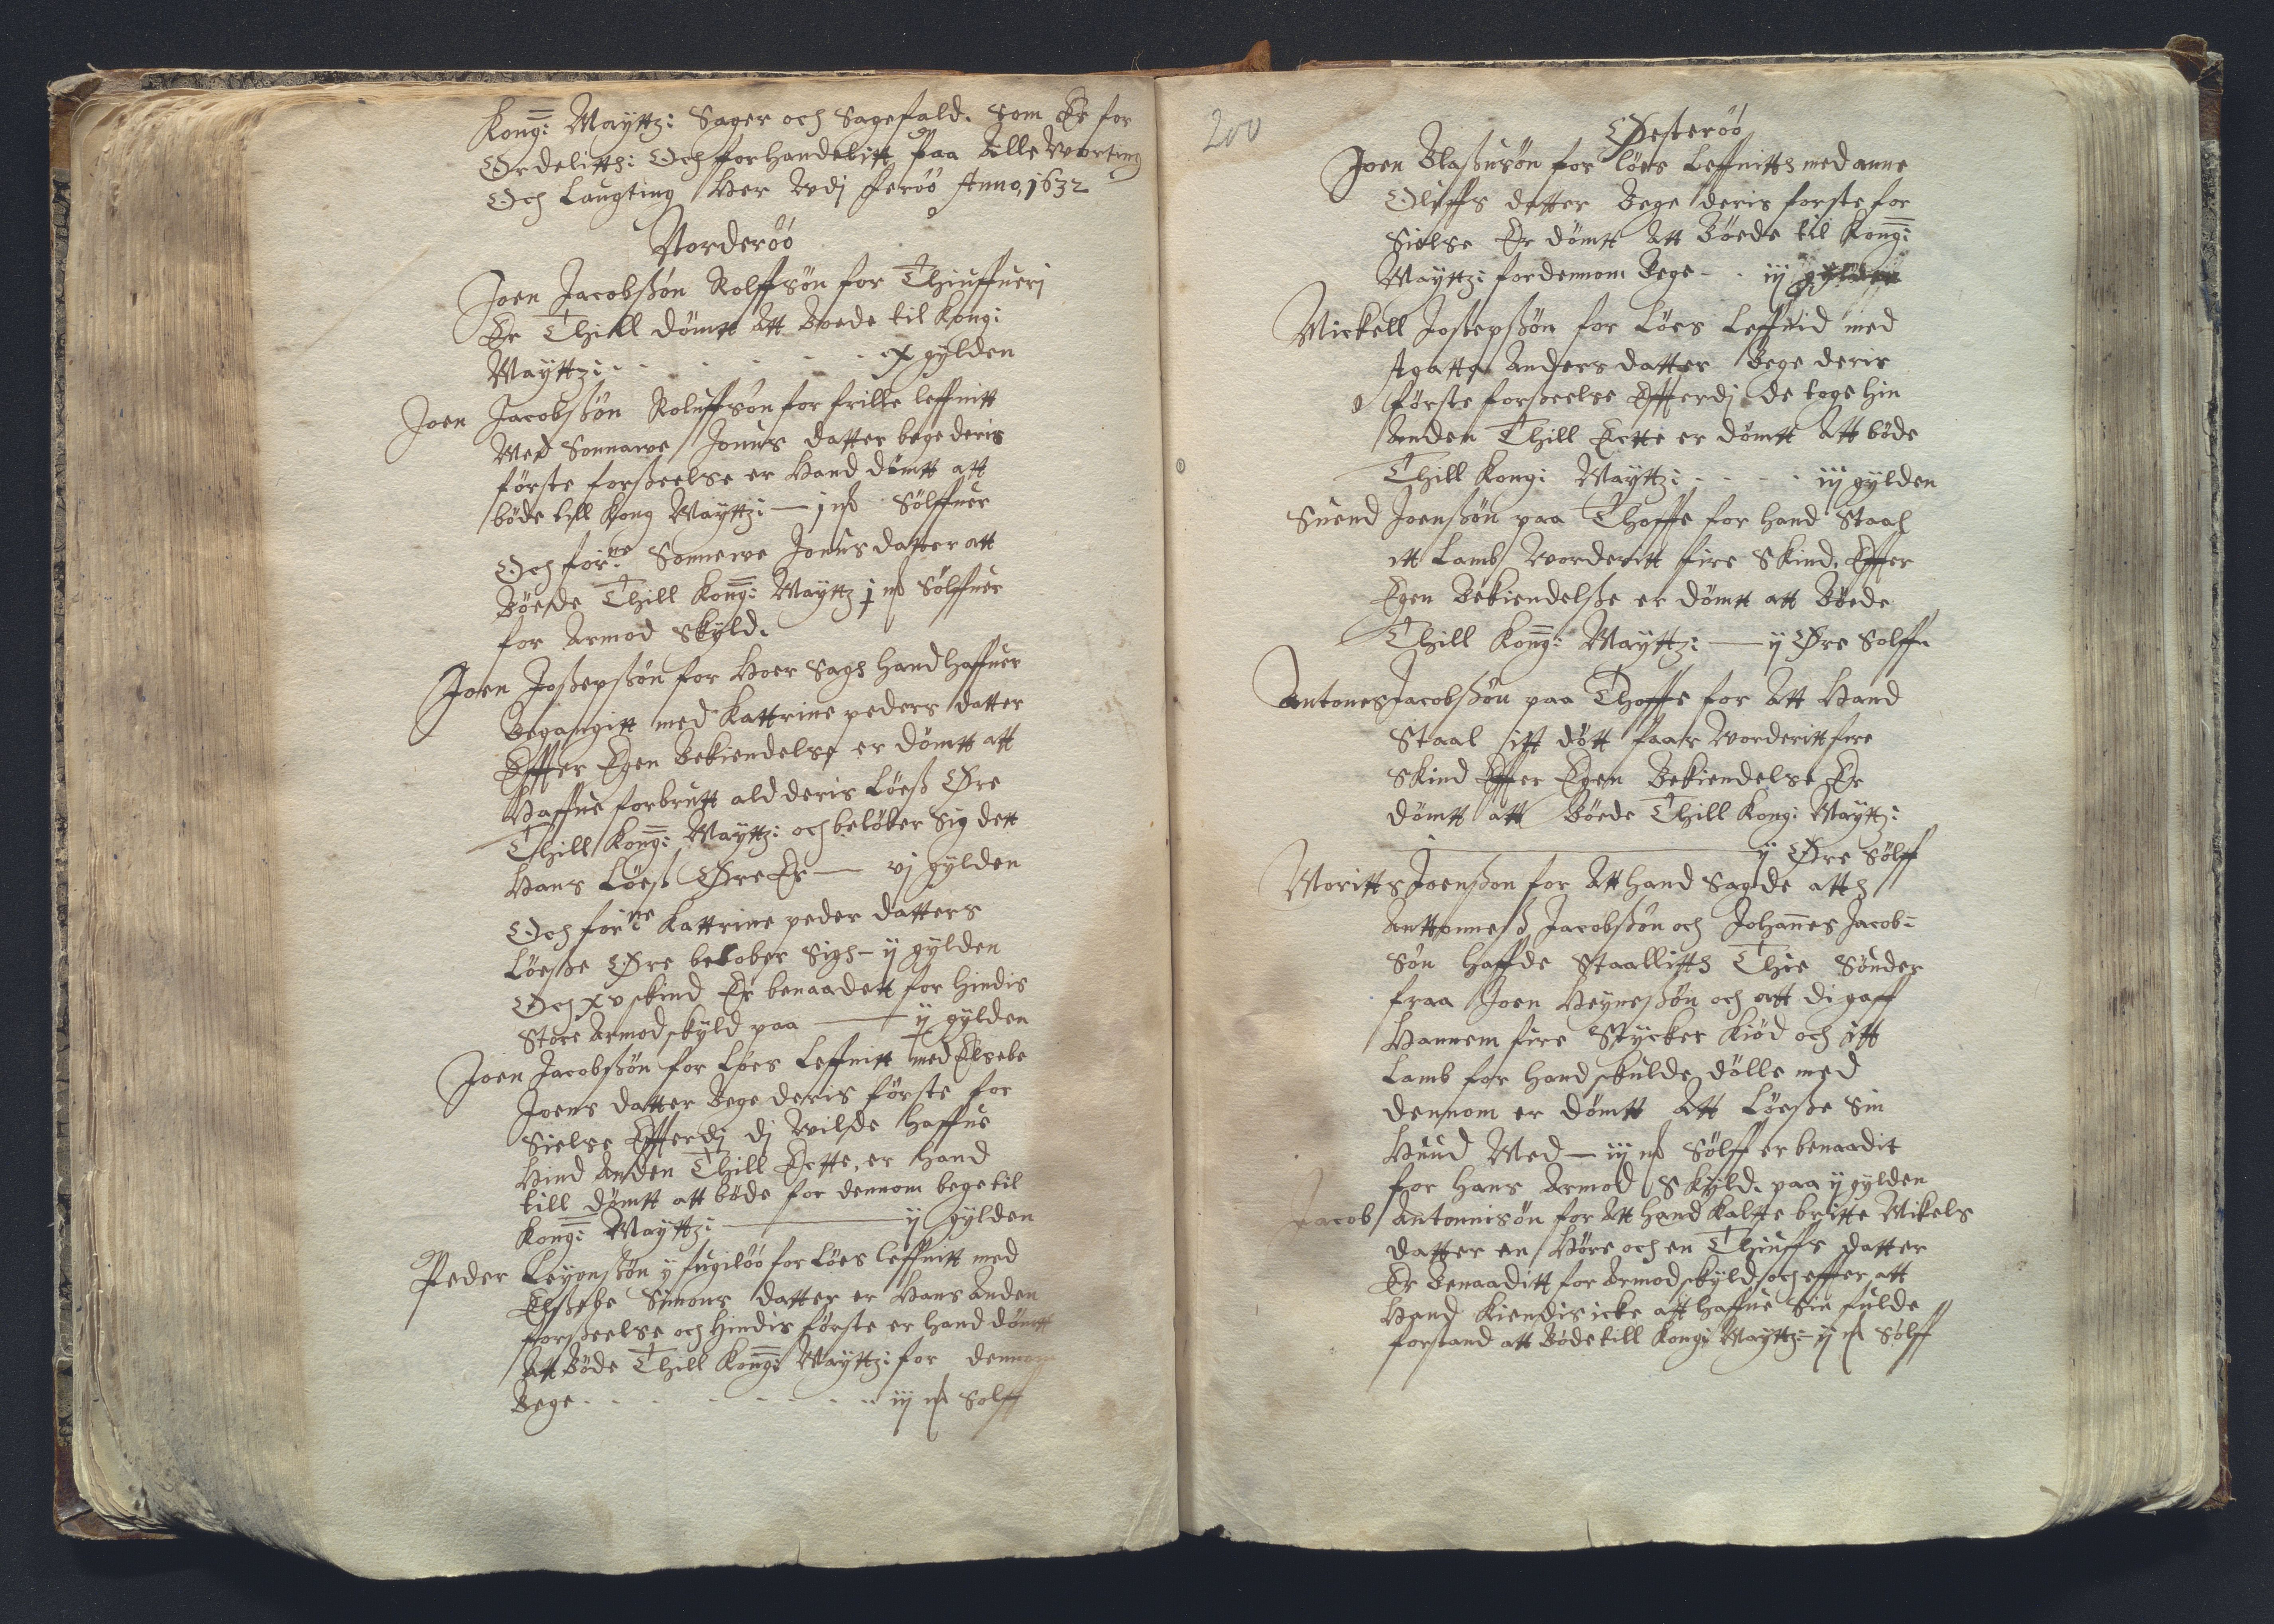 Kong: Mayttz: Sager och Sagefald. Som Er for
Ordelitth: Och forhandelitt paa Alle Worting
Och Laugting Her Wdj Feröö Anno, 1632
Norderöö
Joen Jacobßön Rolffsön for Thiuffuerj
Er Thill dömtt Att Boede til Kong:
Mayttz: - - - - - - x gylden
Joen Jacobßön Roluffsön for frille leffnitt
Med Sonnawe Jonus datter bege deris
förste forßeelse er Hand dömtt att
böde till Kong Mayttz: — j mk Sölffuer
Och for:ne Sonnewe Jonus datter att
Böede Thill Kong: Mayttz j mk Sölffuer
for Armod Skyld.
Joen Joßepßön for Hoer Sags Hand Haffuer
Begangitt med Kattrine peders datter
Effter Egen Bekiendelse er dömtt att
Haffue forbrutt ald deris Löeß Øre
Thill Kong: Mayttz: och belöber Sig dett
Hans Löeß Øre Er — vj gylden
Och for:ne Kattrine peder datters
Löeße Øre belober Sigh - ij gylden
Och xv skind Er benaadett for Hindis
Store Armod skyld paa — ij gylden
Joen Jacobßön for Löes Leffnitt med Elsebe
Joens datter Bege deris förste for
Sielse Effterdj dj wilde Haffue
Hind Anden Thill Ectte, er Hand
till dömtt att böde for dennom bege til
Kong: Mayttz: — ij gylden
Peder Leyonßön ÿ fugilöö for Löes leffnitt med
Elßebe Simons datter er Hans Anden
forßeelse och Hindis förste er Hand dömtt
Att Böde Thill Kong: Mayttz: for dennom
Bege - - - - - - - iij mk Solff
200
Øesteröö
Joen Blaßusön for löes Leffnitts med anne
Oluffs datter Bege deris forste for
Sielse Er dömtt Att Böede til Kong:
Mayttz: for dennom Bege - - iij gylden
Mickell Jostepßön for Löes Leffnid med
Agatta Anders datter Bege deris
förste forßeelse Effterdj de toge Hin
Anden Thill Ectte er dömtt Att böde
Thill Kong: Mayttz: - - - - iij gylden
Suend Joenßön paa Thoffte for Hand Staal
itt Lamb worderitt fire Skind. Effter
Egen Bekiendelße er dömtt att Böede
Thill Kong: Mayttz: — ij Øre Sölff
Antones Jacobßön paa Thoffte for Att Hand
Staal itt dött faar worderitt fire
Skind Effter Egen Bekiendelse Er
dömtt att Böede Thill Kong: Mayttz:
— ij Øre Sölff
Moritts Joenßon for Att Hand Sagde atth
Anttonneß Jacobßön och Johannes Jacob=
Sön Haffde Staallitth Thie Sönder
fraa Joen Heyneßön och att di gaff
Hannem fire Stycker Kiöd och itt
Lamb for Hand skulde dölle med
dennom er dömtt Att Löeße Sin
Huud Med — iij mk Sölff er benaadit
for Hans Armod Skyld. paa ij gylden
Jacob Antonnisön for Att Hand Kalte britte Mikels
datter en Höre och en Thiuffs datter
Er Benaaditt for Armod skyld och effter att
Hand Kiendis icke att Haffue Sin fulde
forstand att Böde till Kong: Mayttz: — ij mk Sölff